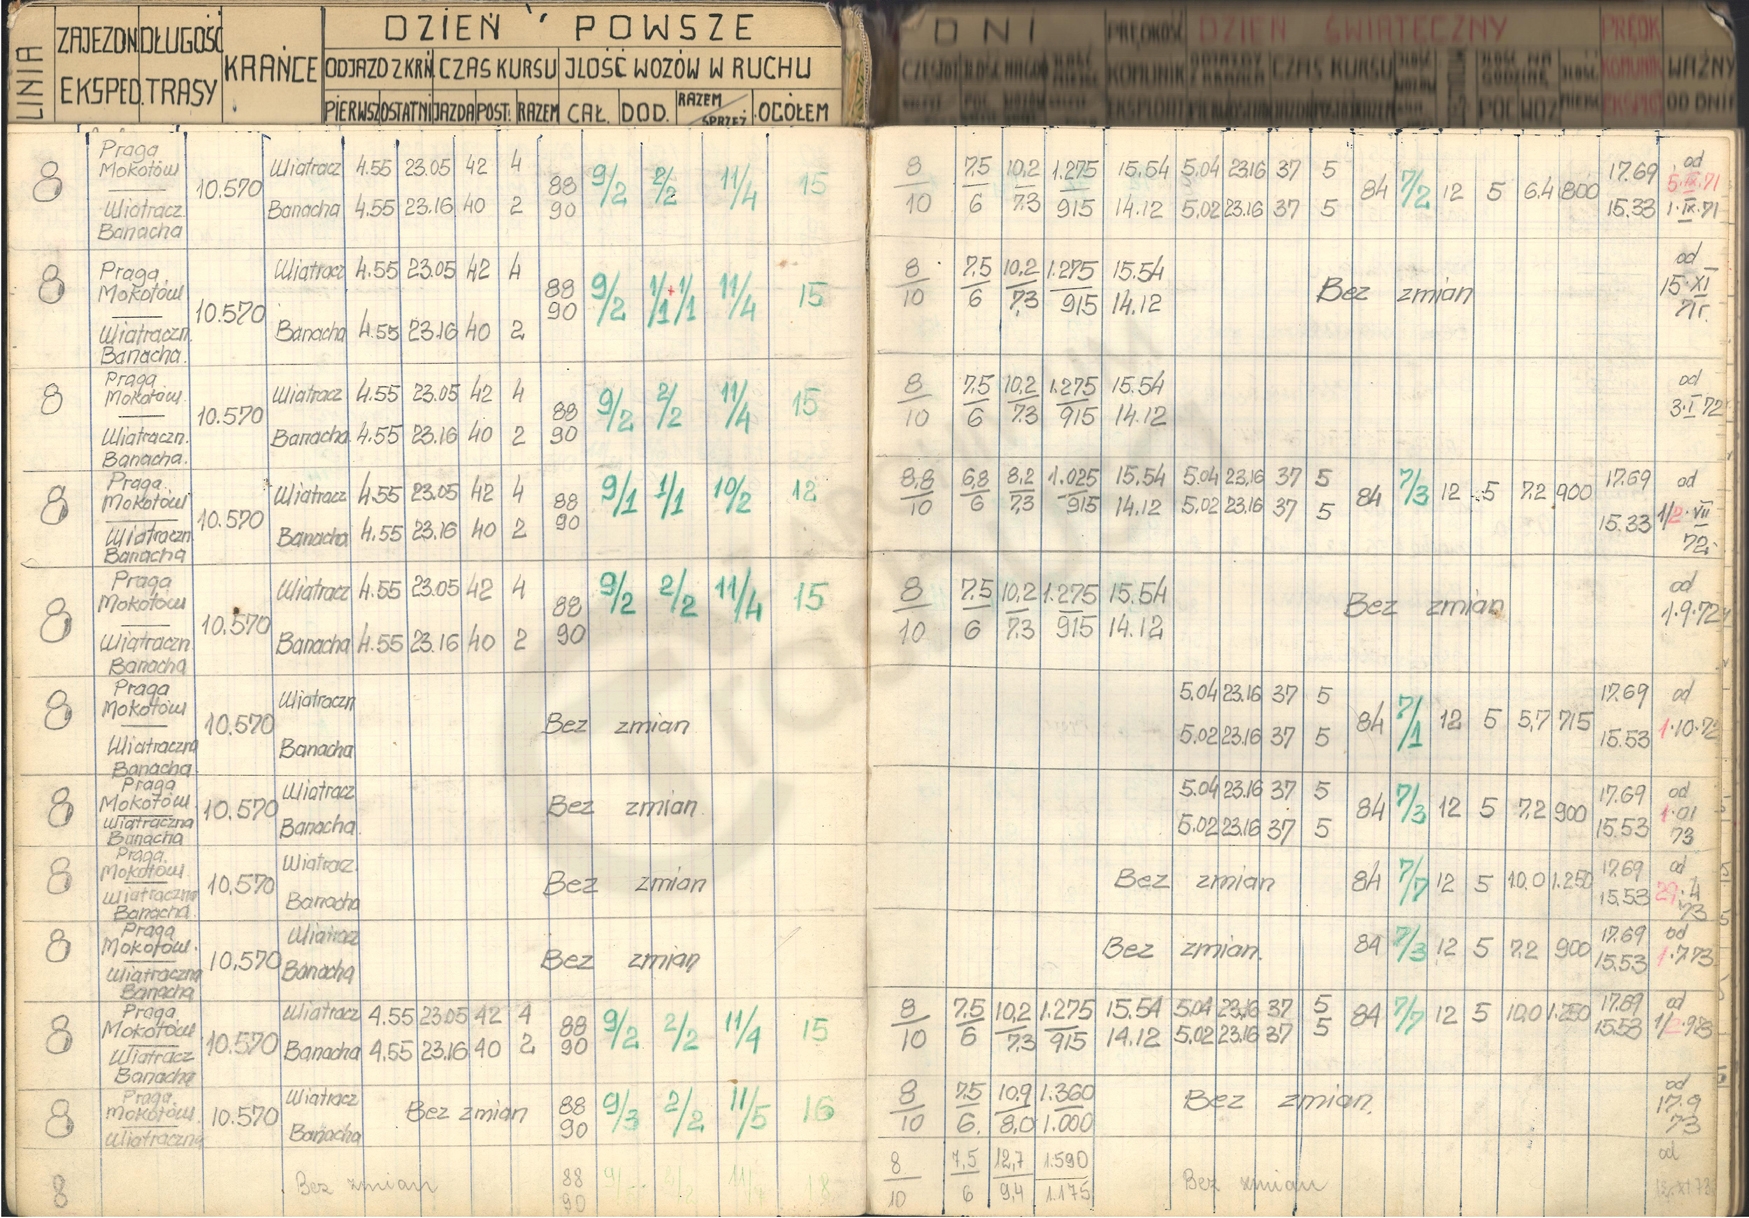 LINIA
ZAJEZDN. EKSPED.
DŁUGOŚĆ TRASY
KRAŃCE
DZIEŃ POWSZE
DNI
ODJAZD Z KRŃ. CZAS KURSU JLOŚĆ WOZÓW W RUCHU
PIERWSZ OSTATNI JAZDA POST. RAZEM CAŁ. DOD. RAZEM/SPRZĘŻ. OGÓŁEM
PRĘDKOŚĆ KOMUNIK EKSPLOAT
DZIEŃ ŚWIĄTECZNY
CZAS KURSU
PRĘDK KOMUNIK
WAŻNY OD DNIA
8 Praga Mokotów 10.570 Wiatracz 4.55 23.05 42 4 88 9/2 2/2 11/4 15 8 7.5 10,2 1.275 15.54 5.04 23.16 37 5 84 7/2 12 5 6.4 800 17.69 od 5.IX.71
Wiatracz. Banacha Banacha 4.55 23.16 40 2 90 10 6 7.3 915 14.12 5.02 23.16 37 5 15.33 1.IX.71
8 Praga Mokotów 10.570 Wiatracz 4.55 23.05 42 4 88 9/2 1/1+1/1 11/4 15 8 7.5 10,2 1.275 15.54 Bez zmian od 15.XI
Wiatraczn. Banacha. Banacha 4.55 23.16 40 2 90 10 6 7,3 915 14.12 71r.
8 Praga Mokotów. 10.570 Wiatracz 4.55 23.05 42 4 88 9/2 2/2 11/4 15 8 7.5 10,2 1.275 15.54 od
Wiatraczn. Banacha. Banacha. 4.55 23.16 40 2 90 10 6 7.3 915 14.12 3.I.72
8 Praga Mokotów 10.570 Wiatracz 4.55 23.05 42 4 88 9/1 1/1 10/2 12 8,8 6,8 8,2 1.025 15.54 5.04 23.16 37 5 84 7/3 12 5 7.2 900 17.69 od
Wiatraczn Banacha Banacha 4.55 23.16 40 2 90 10 6 7,3 915 14.12 5.02 23.16 37 5 15.33 1/2.VII 72.
8 Praga Mokotów 10.570 Wiatracz 4.55 23.05 42 4 88 9/2 2/2 11/4 15 8 7.5 10,2 1.275 15.54 Bez zmian od
Wiatraczn. Banacha Banacha 4.55 23.16 40 2 90 10 6 7.3 915 14.12 1.9.72
8 Praga Mokotów 10.570 Wiatraczn Bez zmian 5.04 23.16 37 5 84 7/1 12 5 5,7 715 17.69 od
Wiatraczna Banacha. Banacha 5.02 23.16 37 5 15.53 1.10.72
8 Praga Mokotów. 10.570 Wiatracz Bez zmian 5.04 23.16 37 5 84 7/3 12 5 7.2 900 17.69 od 1.01
Wiatraczna Banacha Banacha. 5.02 23.16 37 5 15.53 73
8 Praga. Mokotów. 10.570 Wiatracz. Bez zmian Bez zmian 84 7/7 12 5 10.0 1.250 17.69 od
Wiatraczna Banacha. Banacha 15.53 29.4 73
8 Praga Mokotów. 10.570 Wiatracz Bez zmian Bez zmian. 84 7/3 12 5 7.2 900 17.69 od
Wiatraczna Banacha Banacha 15.53 1.7.73
8 Praga Mokotów 10.570 Wiatracz 4.55 23.05 42 4 88 9/2 2/2 11/4 15 8 7.5 10,2 1.275 15.54 5.04 23.16 37 5 84 7/7 12 5 10.0 1.250 17.69 od
Wiatracz Banacha Banacha 4.55 23.16 40 2 90 10 6 7,3 915 14.12 5.02 23.16 37 5 15.53 1/2.9.73
8 Praga Mokotów. 10.570 Wiatracz Bez zmian 88 9/3 2/2 11/5 16 8 7.5 10,9 1.360 Bez zmian. od 17.9
Wiatraczna Banacha 90 10 6. 8,0 1.000 73
8 Bez zmian 88 8 7,5 12,7 1.590 Bez zmian od
90 10 6 9,4 1.175